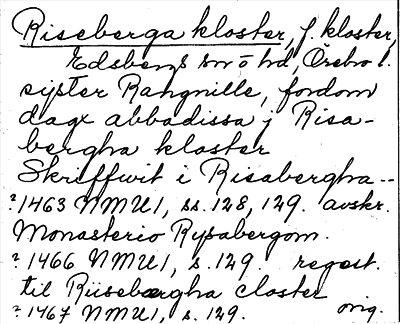 Riseberga kloster, f. kloster,
Edsbergs sn o hd, Örebro l.
syster Rangnille, fordom
dagx abbadissa j Risa-
bergha kloster
Skreffwit i Risabergha --
? 1463 NMU1, ss. 128, 129. avskr.
Monasterio Rysabergom.
? 1466 NMU1, s. 129. regest.
til Riisebærgha closter
? 1467 NMU1, s. 129. orig.